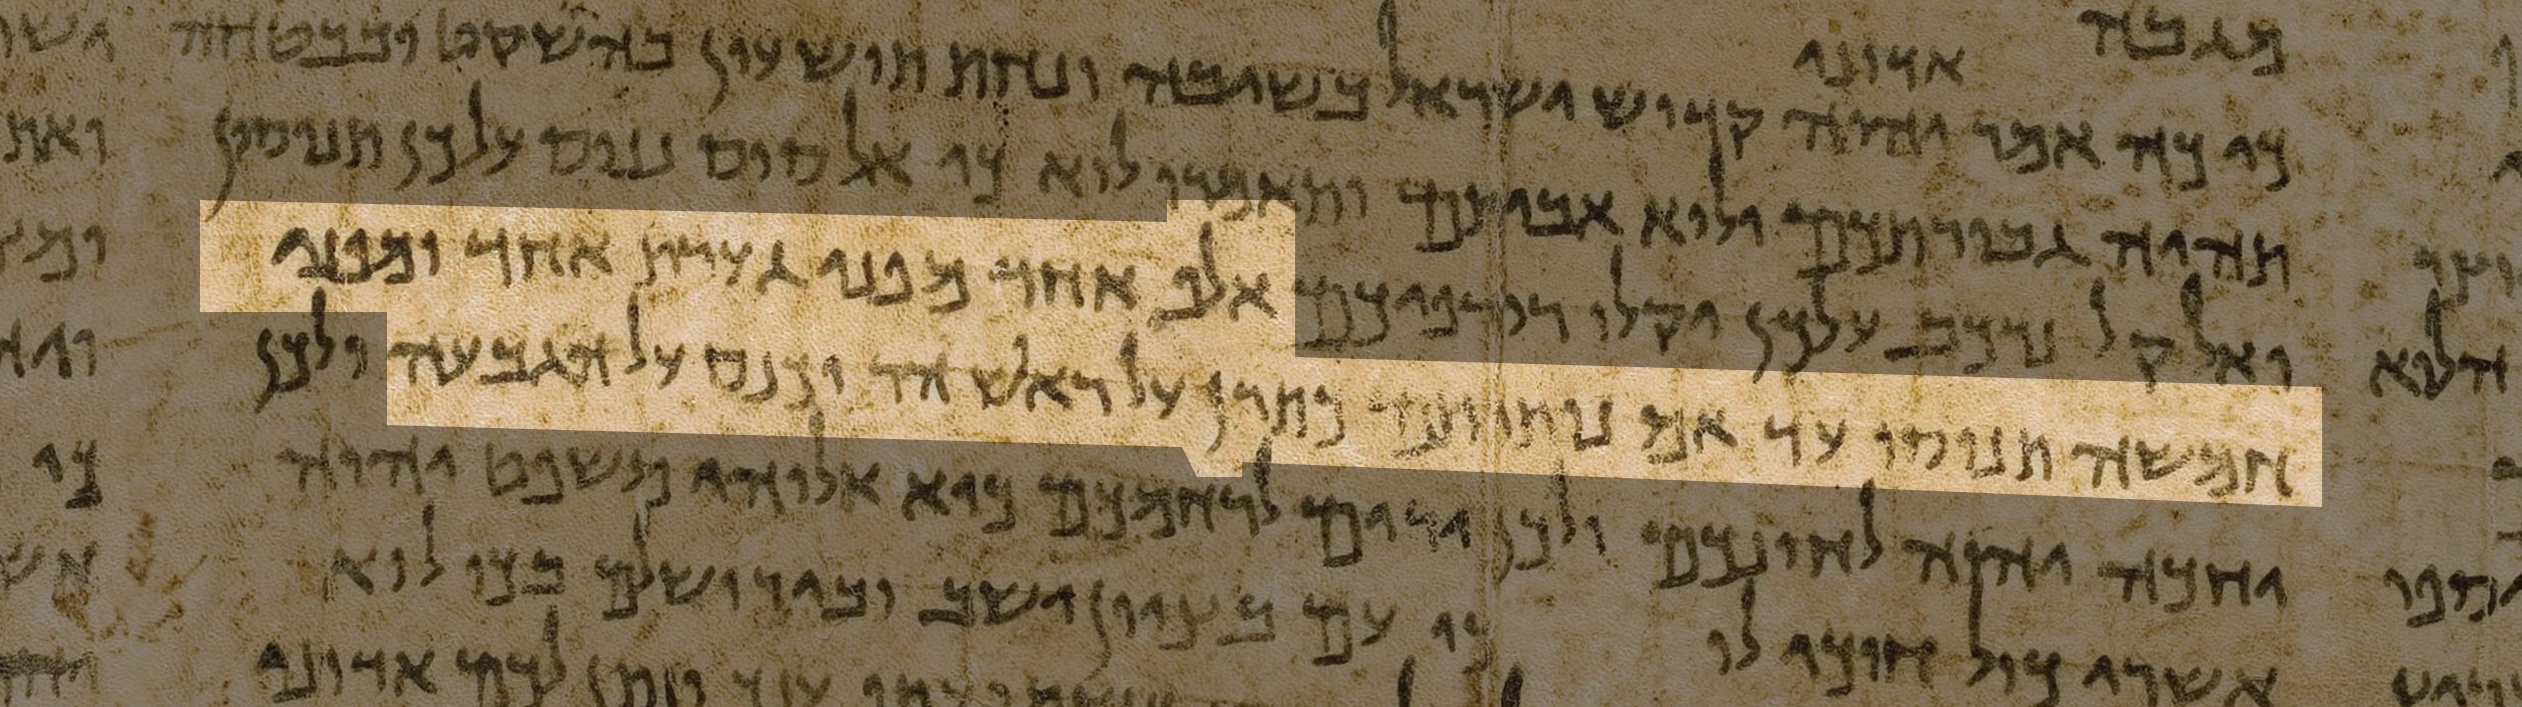 מגבה
אדוני
כי כה אמר יהוה קדוש ישראל בשובה ונחת תושעון בהשקט ובבטחה
תהיה גבורתכם ולוא אביתם ותאמרו לוא כי אל סוס ננוס על כן תנוסון
ואל קל נרכב על כן יקלו רודפיכם אלף אחד מפני גערת אחד ומפני
חמשה תנוסו עד אם נותרתם כתרן על ראש הר וכנס על הגבעה ולכן
יחכה יהוה לחוננכם ולכן ירום לרחמכם כיא אלוהי משפט יהוה
אשרי כול חוכי לו כי עם בציון ישב ובירושלים בכו לוא
לכם אדוני